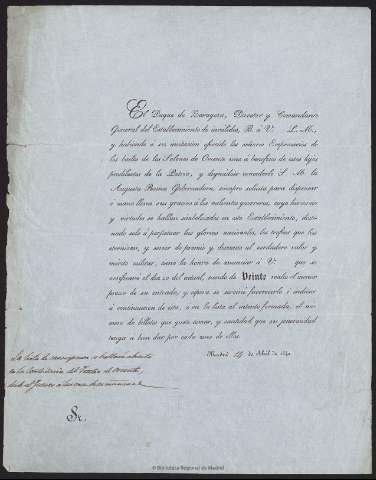 El Duque de Zaragoza, Director y Comandante
General del Establecimiento de inválidos, B. á V. L. M.,
y habiendo á su invitacion ofrecido los señores Empresarios de
los bailes de los Salones de Oriente uno a beneficio de estos hijos
predilectos de la Patria, y dignádose concederlo S. M. la
Augusta Reina Gobernadora, siempre solícita para dispensar
á manos llenas sus gracias á los valientes guerreros, cuyo heroismo
y virtudes se hallan simbolizados en este Establecimiento, desti-
nado solo á perpetuar las glorias nacionales, los trofeos que los
eternizan, y servir de premio y descanso al verdadero valor y
mérito militar, tiene la honra de anunciar á V. que se
verificará el dia 20 del actual, siendo de Veinte reales el menor
precio de su entrada, y espera se servirá favorecerle é indicar
á continuacion de este, ó en la lista al intento formada, el nú-
mero de billetes que guste tomar, y cantidad que su generosidad
tenga á bien dar por cada uno de ellos.
Madrid 14 de Abril de 1840
La lista de se hallará abierta
en la Contaduría del Teatro de Oriente,
desde el Jueves
Sr.
© Biblioteca Regional de Madrid